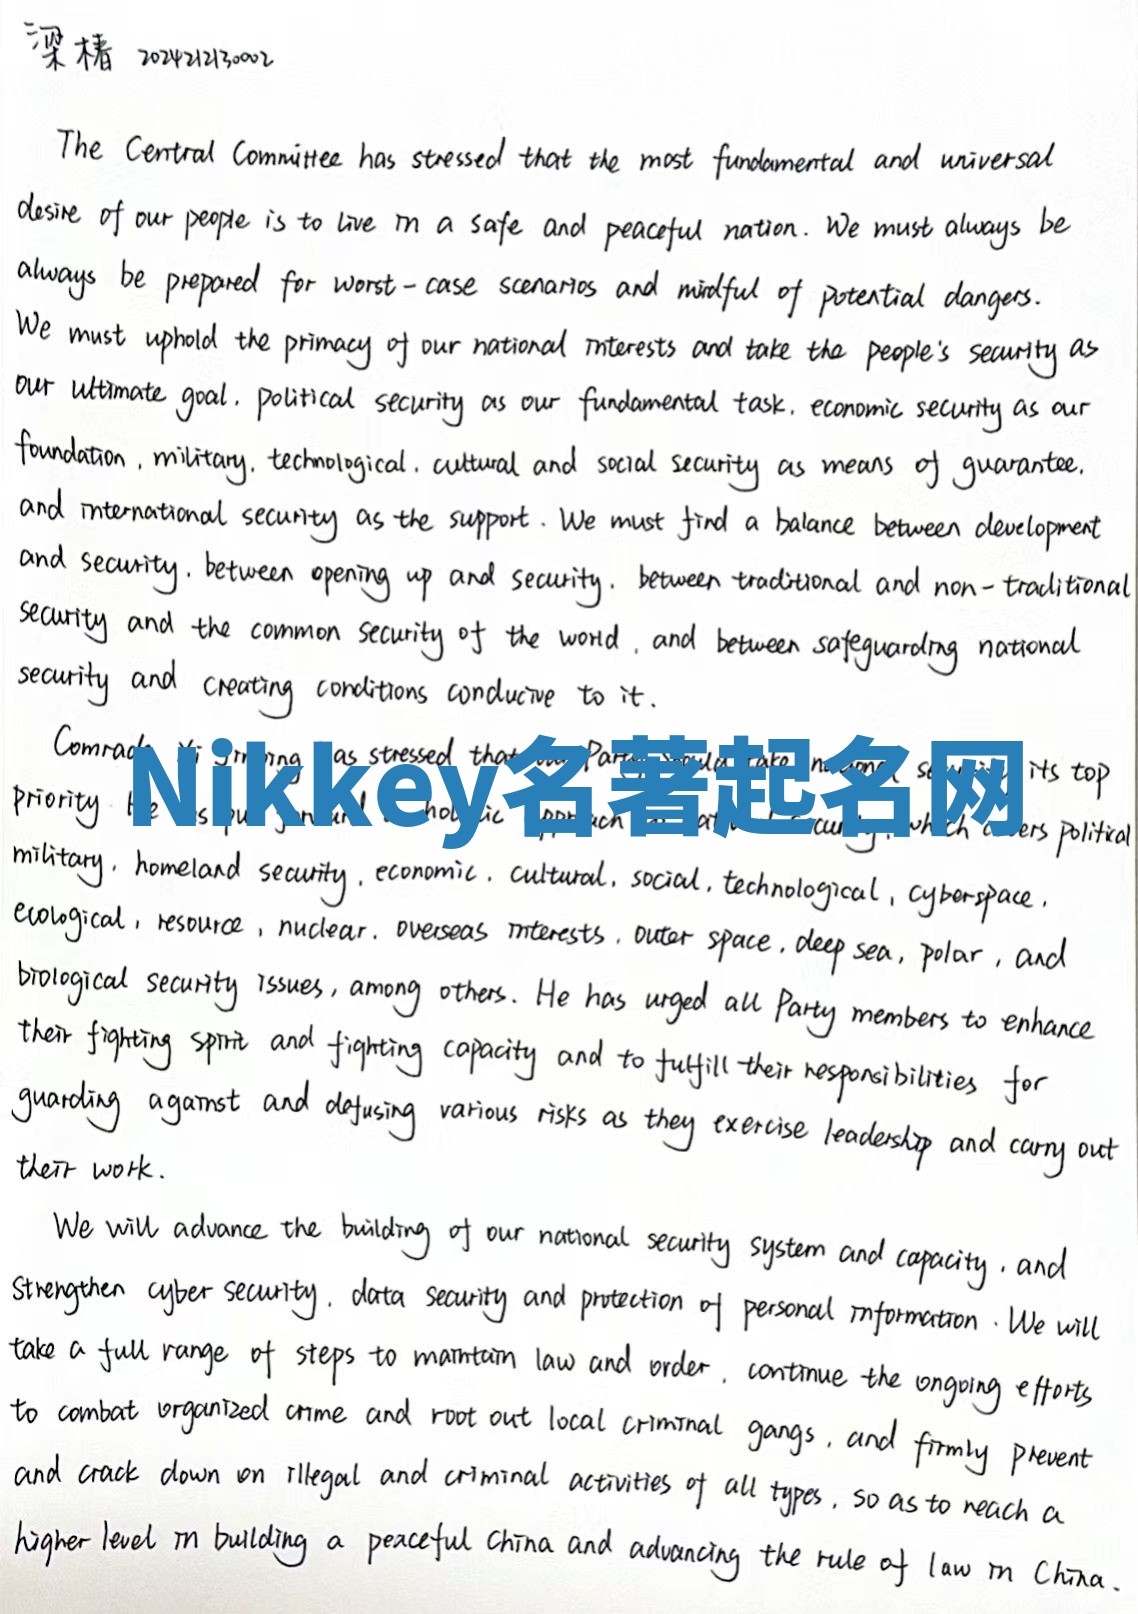 梁椿 2024212130002
The Central Committee has stressed that the most fundamental and universal
desire of our people is to live in a safe and peaceful nation. We must always be
always be prepared for worst-case scenarios and mindful of potential dangers.
We must uphold the primacy of our national interests and take the people's security as
our ultimate goal, political security as our fundamental task, economic security as our
foundation, military, technological, cultural and social security as means of guarantee,
and international security as the support. We must find a balance between development
and security, between opening up and security, between traditional and non-traditional
security and the common security of the world, and between safeguarding national
security and creating conditions conducive to it.
Comrade has stressed that Party take its top
Nikkey名著起名网
priority which covers political
military, homeland security, economic, cultural, social, technological, cyberspace,
ecological, resource, nuclear, overseas interests, outer space, deep sea, polar, and
biological security issues, among others. He has urged all Party members to enhance
their fighting spirit and fighting capacity and to fulfill their responsibilities for
guarding against and defusing various risks as they exercise leadership and carry out
their work.
We will advance the building of our national security system and capacity, and
strengthen cyber security, data security and protection of personal information. We will
take a full range of steps to maintain law and order, continue the ongoing efforts
to combat organized crime and root out local criminal gangs, and firmly prevent
and crack down on illegal and criminal activities of all types, so as to reach a
higher level in building a peaceful China and advancing the rule of law in China.